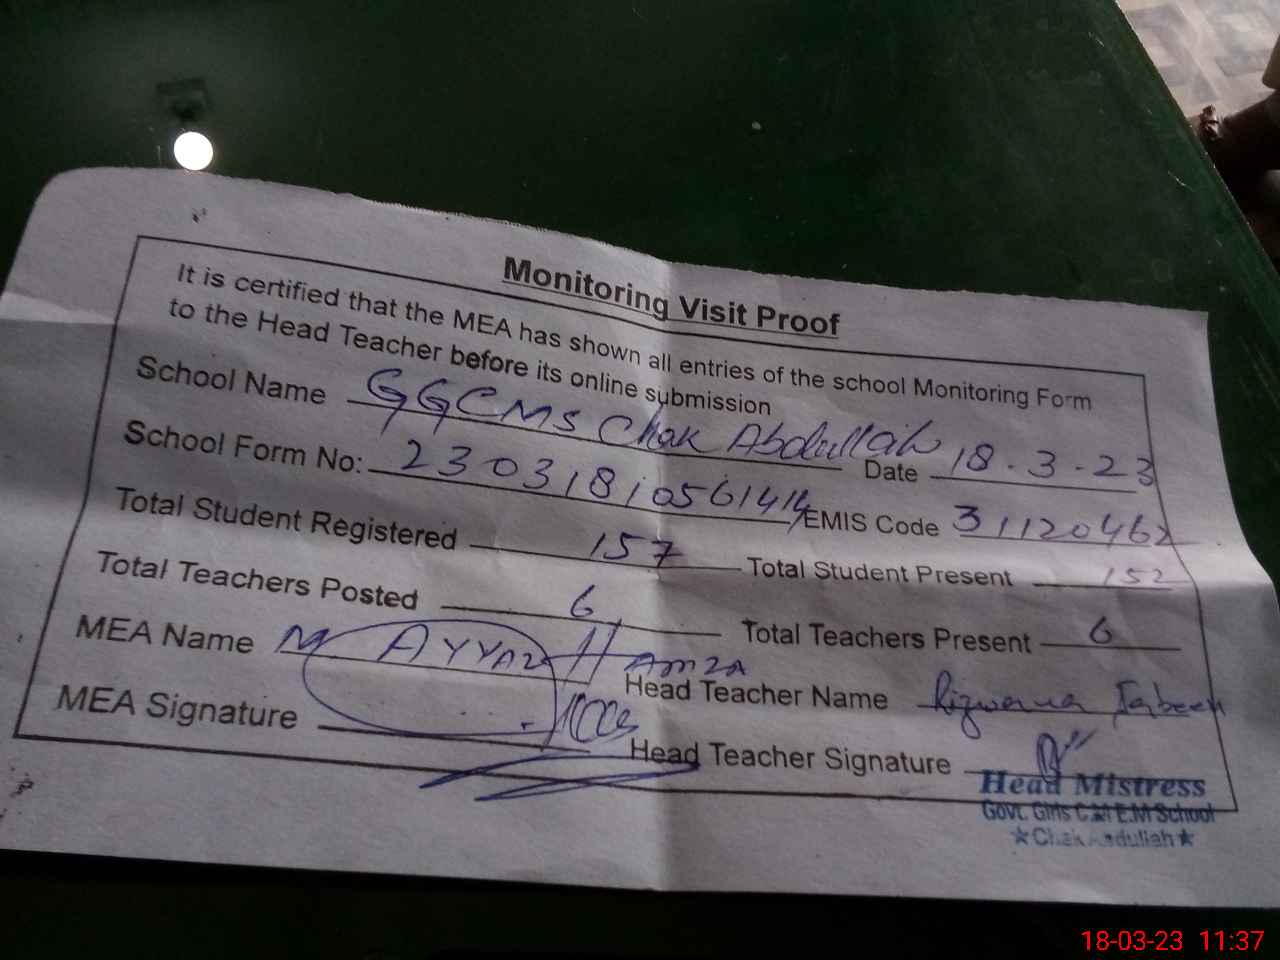 Monitoring Visit Proof
It is certified that the MEA has shown all entries of the school Monitoring Form
to the Head Teacher before its online submission
School Name GGCMS Chak Abdullah Date 18.3.23
School Form No: 23031810561414 EMIS Code 31120462
Total Student Registered 157 Total Student Present 152
Total Teachers Posted 6 Total Teachers Present 6
MEA Name M AYYAZ HAMZA Head Teacher Name Rizwana
MEA Signature Head Teacher Signature
Head Mistress
Govt. Girls C.M E.M School
★Chak Abdullah★
18-03-23 11:37